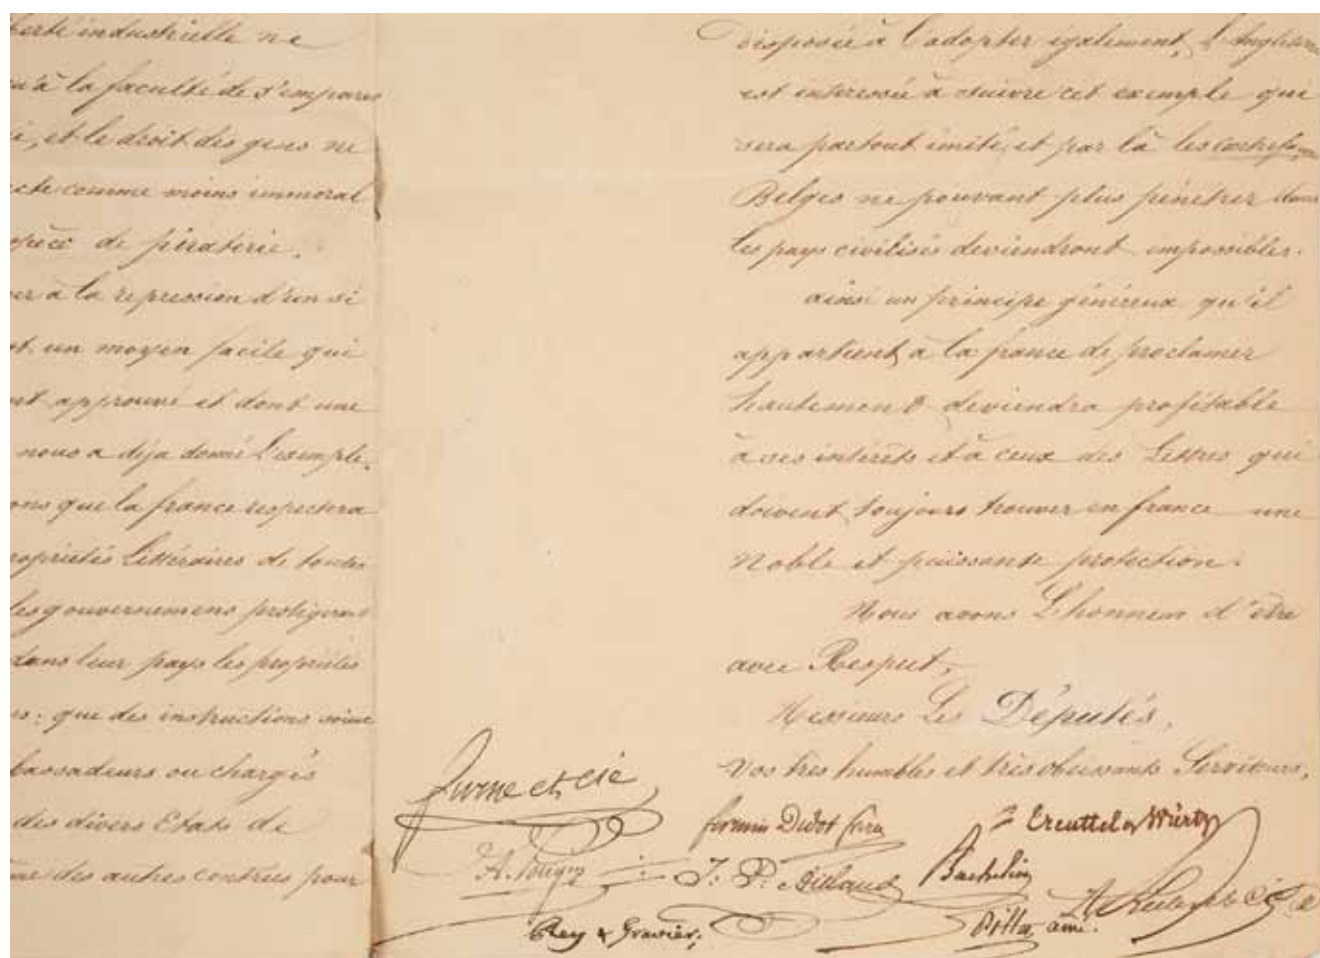 berté industrielle ne
qu'à la faculté de s'emparer
et le droit des gens ne
acte comme moins immoral
espèce de piraterie.
er à la repression d'un si
st un moyen facile qui
nt approuvé et dont une
nous a déja donné l'exemple.
ons que la france respectera
ropriétés Littéraires de toutes
les gouvernemens protégeront
dans leur pays les propriétés
s: que des instructions soient
bassadeurs ou chargés
des divers Etats de
des autres contrées pour
disposée à l'adopter également, l'Angleterre
est intéressée à suivre cet exemple qui
sera partout imité, et par là les contrefaçons
Belges ne pouvant plus pénétrer dans
les pays civilisés deviendront impossibles.
ainsi un principe généreux qu'il
appartient à la france de proclamer
hautement deviendra profitable
à ses intérêts et à ceux des Lettres qui
doivent toujours trouver en france une
Noble et puissante protection.
Nous avons L'honneur d'être
avec Respect,
Messieurs Les Députés,
Vos très humbles et très obeissants Serviteurs,
furne et cie
firmin Didot frères
Treuttel & Würtz
J. P. Aillaud
Bachelier
Rey & Gravier;